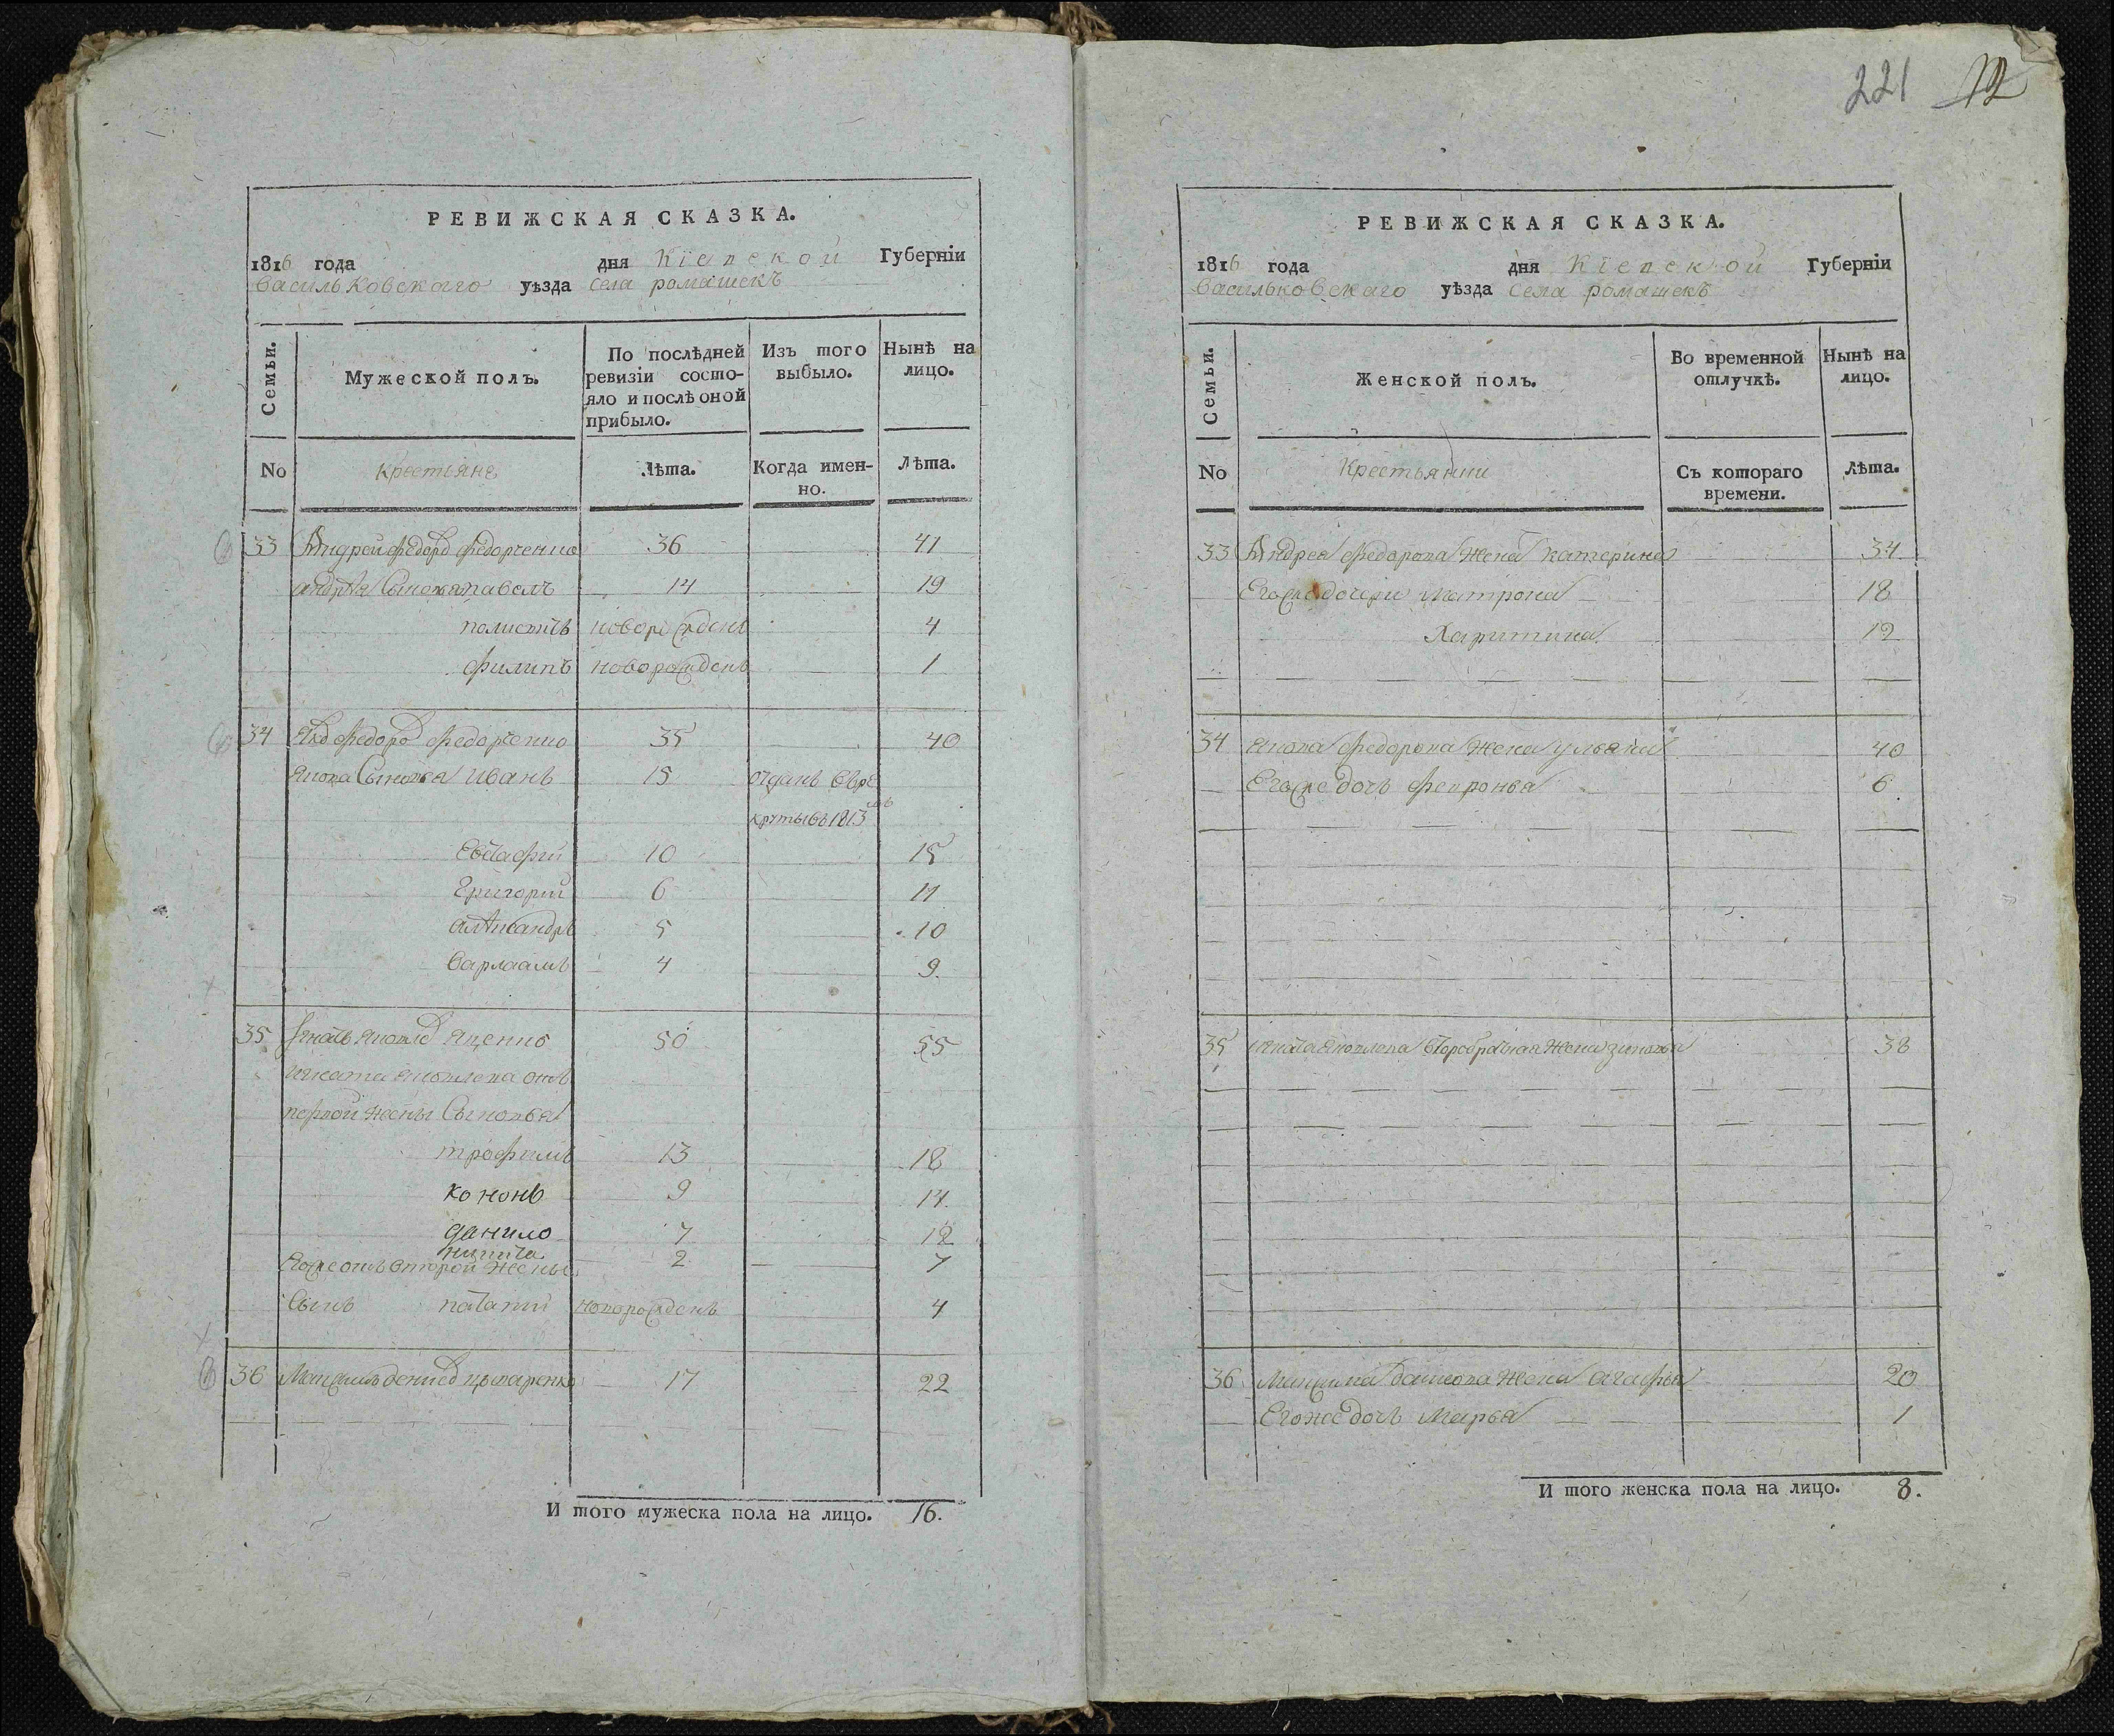 221 12
РЕВИЖСКАЯ СКАЗКА.
1816 года дня Кіевской Губерніи
Васильковского уѣзда села ромашекъ
Семьи.
Мужеской полъ.
По послѣдней ревизіи состо-
яло и послѣ оной
прибыло.
Изъ того выбыло.
Нынѣ на лицо.
No Крестьяне Лѣта. Когда имен-
но. Лѣта.
33 Андрей федоров федорченко 36 41
андрея Сыновья павелъ 14 19
новорожденъ 4
филипъ новорожденъ 1
34 федоров федорченко 35 40
якова Сыновья иванъ 15 отданъ
1813
Евстафий 10 15
Григорий 6 11
александръ 5 10
Варлаамъ 4 9.
35 Яценко 50 55
отъ
первой жены Сыновья
трофимъ 13 18
кононъ 9 14
данило 7 12
никита 2 7
Егоже отъ второй жены
Сынъ потапий новорожденъ 4
36 Максимъ 17 22
И того мужеска пола на лицо. 16.
РЕВИЖСКАЯ СКАЗКА.
1816 года дня Кіевской Губерніи
Васильковского уѣзда села ромашекъ
Семьи.
Женской полъ.
Во временной отлучкѣ.
Нынѣ на лицо.
No Крестьянки Съ котораго
времени. Лѣта.
33 Андрея федорова жена катерина 34
Егоже дочери Матрона 18
Харитина 12
34 якова федорова жена ульяна 40
Егоже дочь феврония 6
35 второбрачная жена 38
36 Максима жена агафья 20
Егоже дочь Марья 1
И того женска пола на лицо. 8.